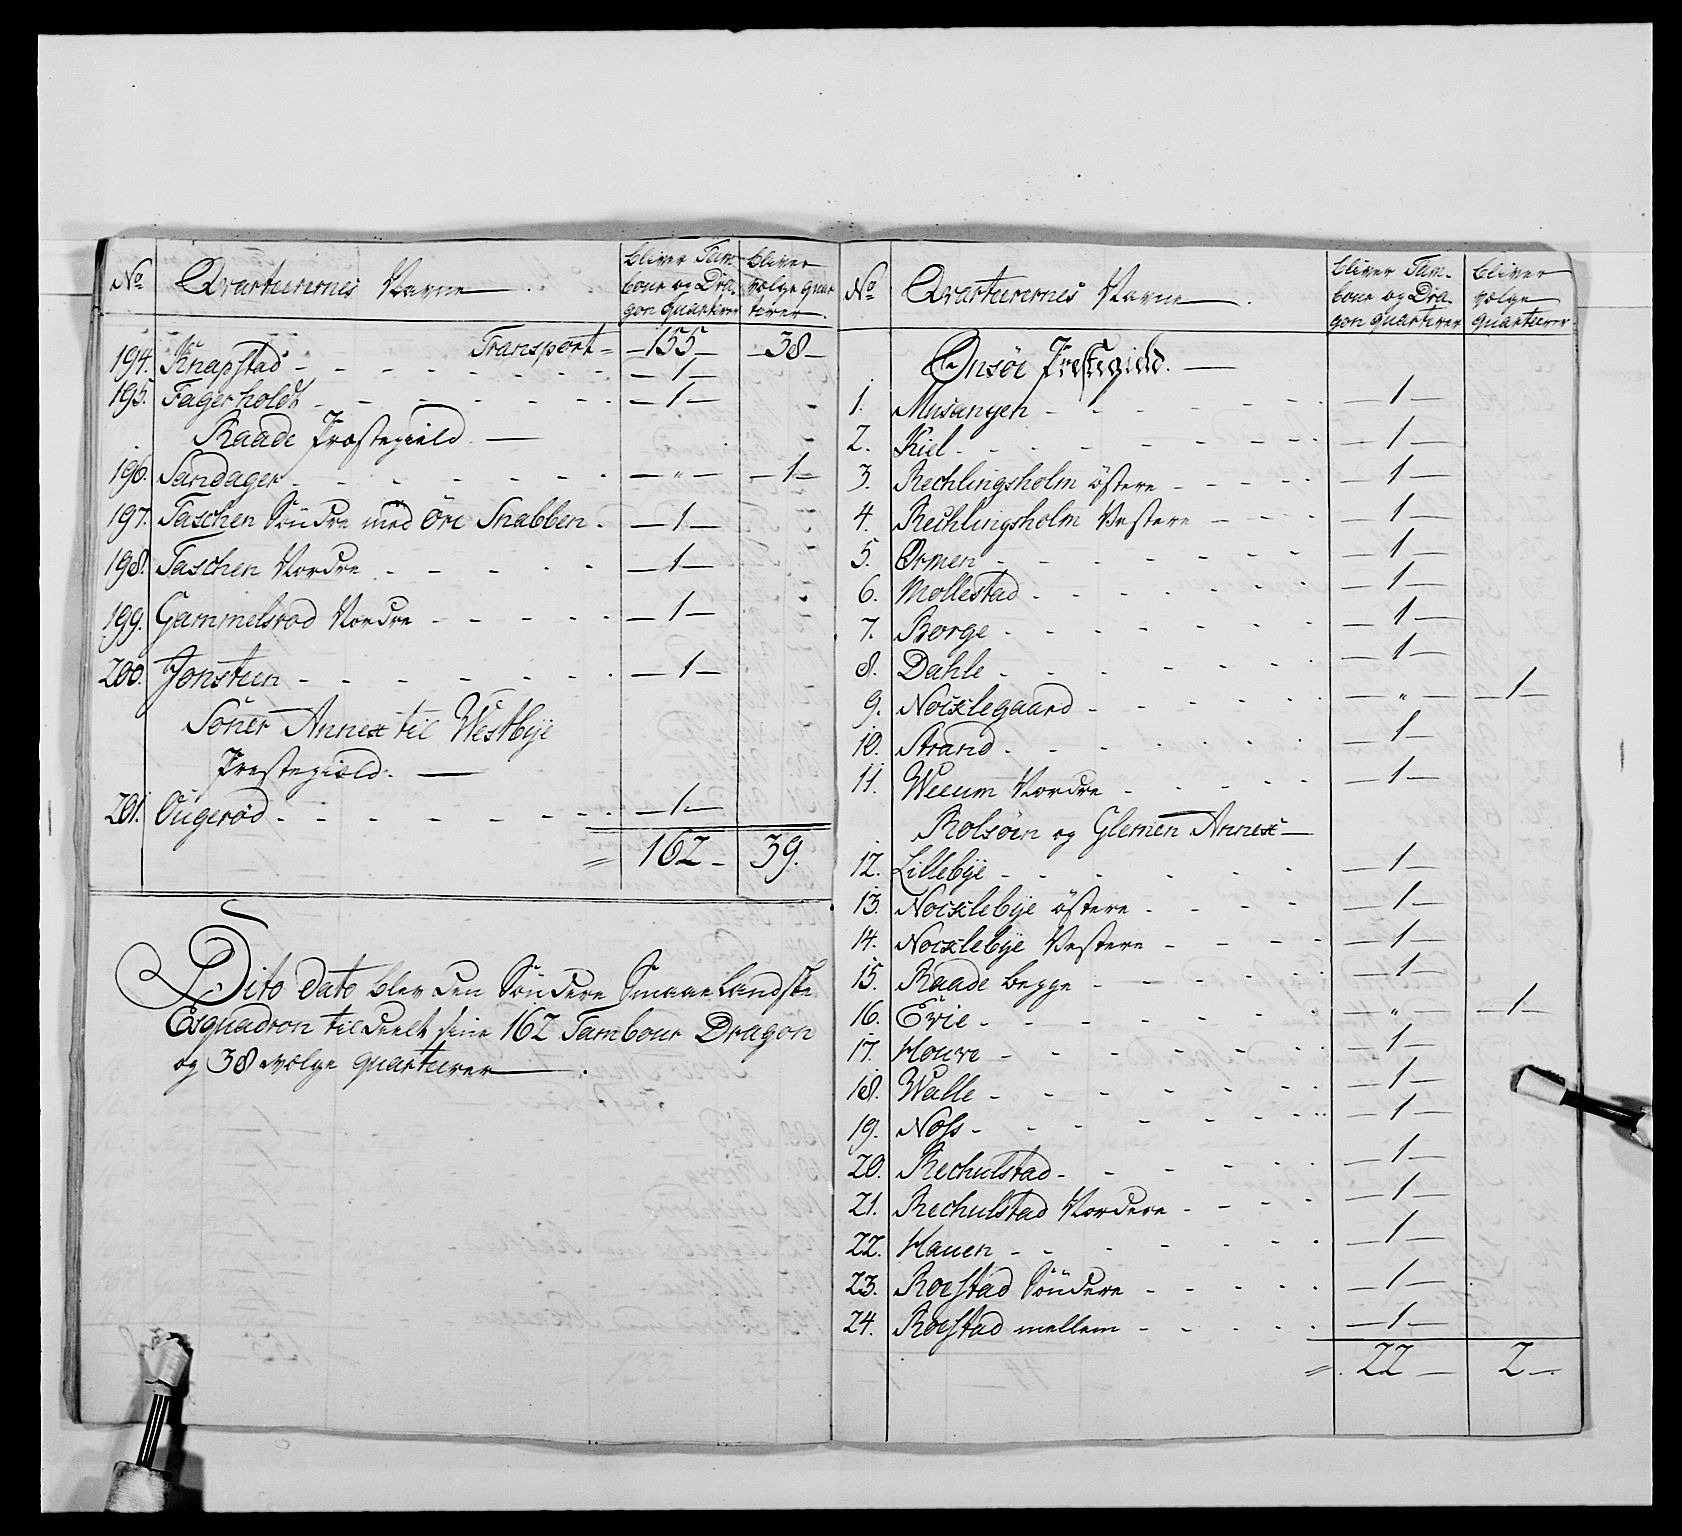 No Qvarterernes Navne bliver Tam- bliver
bour og Dra- vælge quar
gon quarterer terer.
Transport - 155 - 38 -
194. Knapstad - 1 -
195. Fagerholdt - 1 -
Raade Præstegield.
196. Sandager - " - - 1 -
197. Taschen Söndre med Öre Snabben - 1 -
198. Taschen Nordre - 1 -
199. Gammelsrod Nordre - 1 -
200. Jonsteen - 1 -
Söner Annex til Westbÿe
Præstegield.
201. Ougeröd - 1 -
= 162 - 39.
Dito Dato blev den Söndere Smaaelandske
Esquadron tildeelt sine 162 Tambour Dragon
og 38 vælge quarterer.
No Qvarterernes Navne bliver Tam- bliver
bour og Dra- vælge
gon quarterer quarterer.
Onsöe Præstegield.
1. Musangen - 1 -
2. Kiel - 1 -
3. Rechlingsholm östere - 1 -
4. Rechlingsholm Vestere - 1 -
5. Ørmen - 1 -
6. Mollestad - 1 -
7. Borge - 1 -
8. Dahle - 1 -
9. Noxlegaard - " - - 1 -
10. Strand - 1 -
11. Weeum Nordre - 1 -
Rolsöen og Glemen Annex
12. Lillebÿe - 1 -
13. Noxlebÿe östere - 1 -
14. Noxlebÿe Vestere - 1 -
15. Raade begge - 1 -
16. Evie - " - - 1 -
17. Houve - 1 -
18. Walle - 1 -
19. Noss - 1 -
20. Rechulstad - 1 -
21. Rechulstad Nordere - 1 -
22. Hauen - 1 -
23. Roestad Söndere - 1 -
24. Roestad mellem - 1 -
= 22 - 2 -